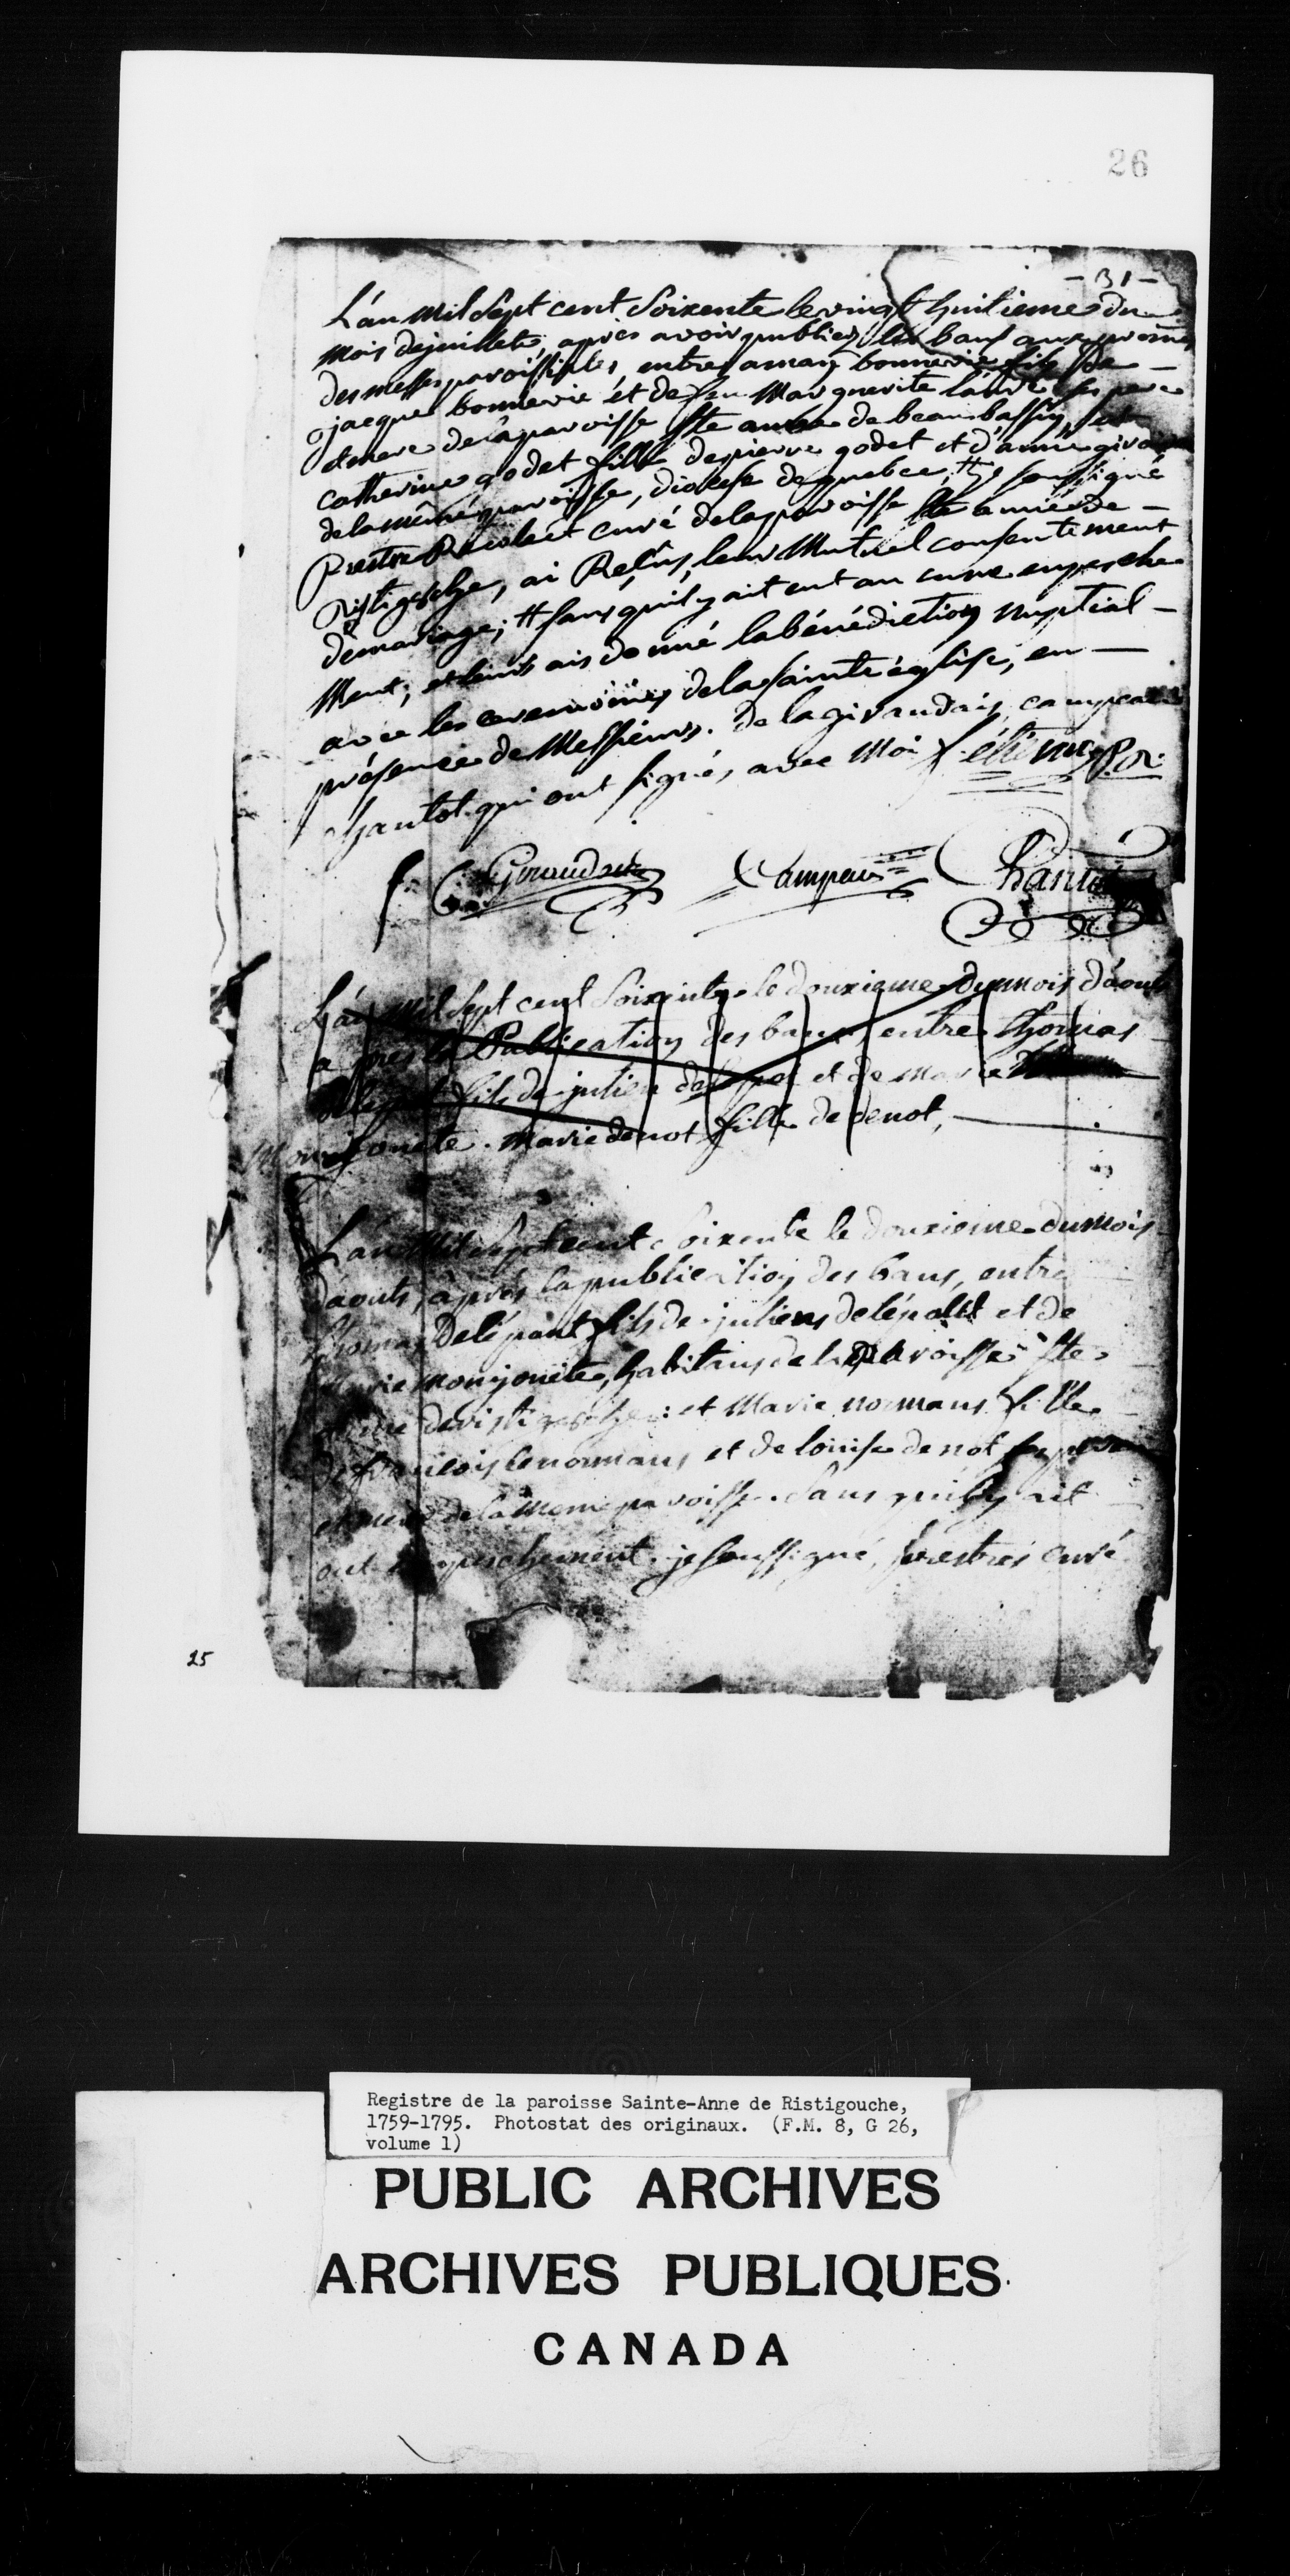 26
- 31 -
L'an mil Sept cent Soixente le vingt huitieme du
mois dejuillete, apres avoir publiez les bans aux prones
des messes paroissiales, entre amant bonnevie fils de
jacque bonnevie et de feu Marguerite laure ses pere
et mere dela paroisse Ste anne de beaubassin, et
catherine godet fille depierre godet et d'anne giroir
de la même paroisse, diocese de quebec, soussigné
Prestre Recolect curé dela paroisse Ste anne de
Ristigoche, ai Reçus, leur Mutuel consentement
de mariage; # sans quil y ait eut aucune empesche
Ment; et leurs ais donné la bénédiction nuptial
avec les ceremonies dela sainte église, en
présence de Messieurs. de la giraudais, campeau
chantot qui ont signés avec moi f. étienne P. R.
f. Giraudais Campeau Chantot
L'an Mil Sept cent Soixente le douzieme du mois d'aouts
apres la Publication des bans, entre thomas
fils de julien et de marie
monjonete. marie denot fille de denot,
L'an Mil Sept cent Soixente le douzieme du mois
d'aouts, après la publication des bans, entre
thomas delépant fils de juliens delépalt et de
Marie monjonete, habitans de la Paroisse Ste
anne de ristigoche: et Marie normans fille
de francois lenormans et de louise denot ses pere
et mere de la meme paroisse. Sans quil y ait
eut empeschement. je soussigné, prestres curé
25
Registre de la paroisse Sainte-Anne de Ristigouche,
1759-1795. Photostat des originaux. (F.M. 8, G 26,
volume 1)
PUBLIC ARCHIVES
ARCHIVES PUBLIQUES
CANADA